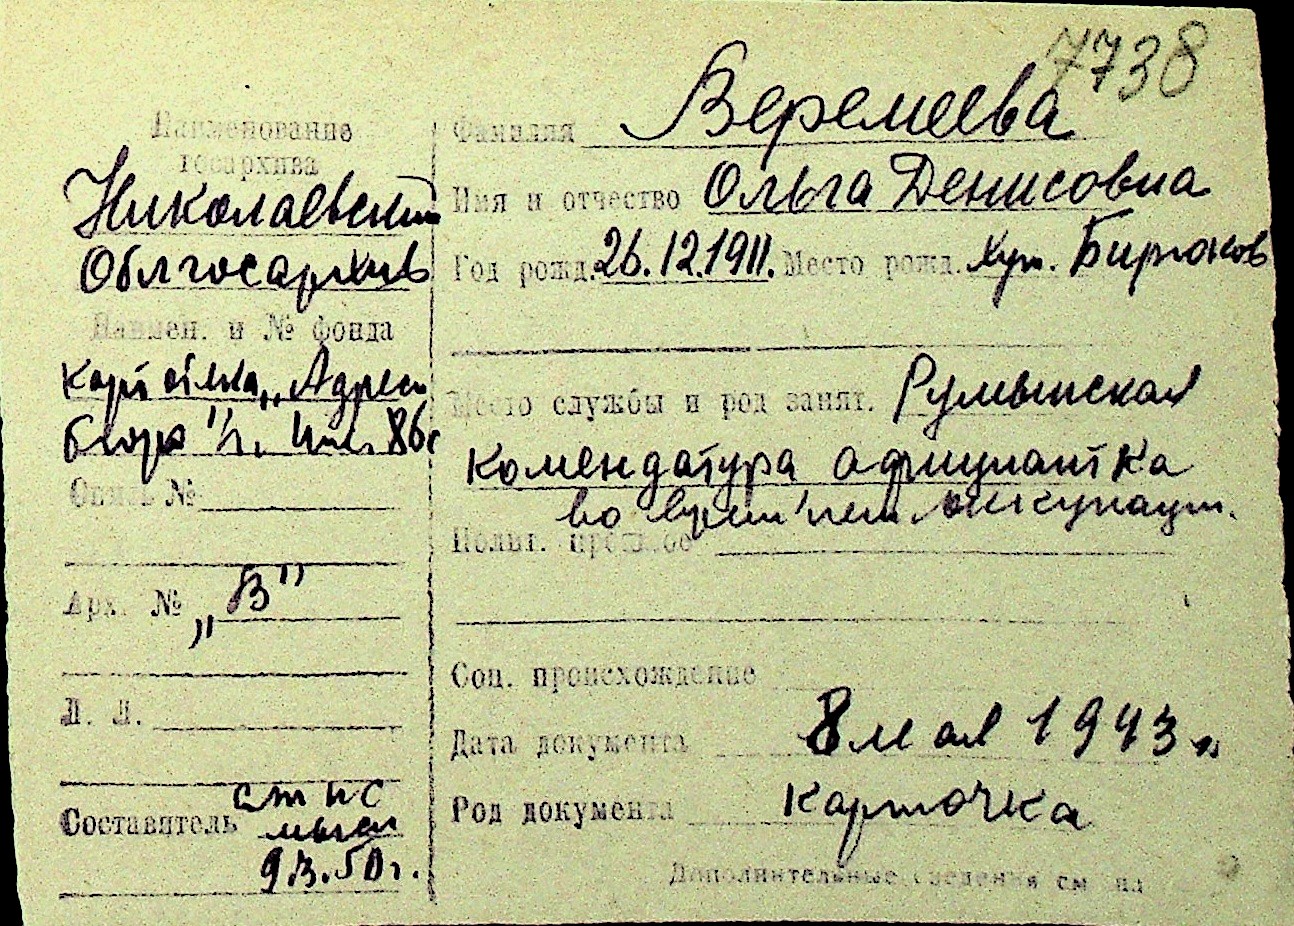 7738
Наименование
госархива
Николаевский
Облгосархив
Наимен. и № фонда
картотека „Адресн
бюро"
Опись №
Арх. № „В"
Л. Л.
Составитель
9.3.50 г.
Фамилия Веремеева
Имя и отчество Ольга Денисовна
Год рожд. 26.12.1911. Место рожд. хут. Бирюков
Место службы и род занят. Румынская
комендатура официантка
во время нем оккупации.
Полит. прошлое
Соц. происхождение
Дата документа 8 мая 1943 г.
Род документа карточка
Дополнительные сведения см на